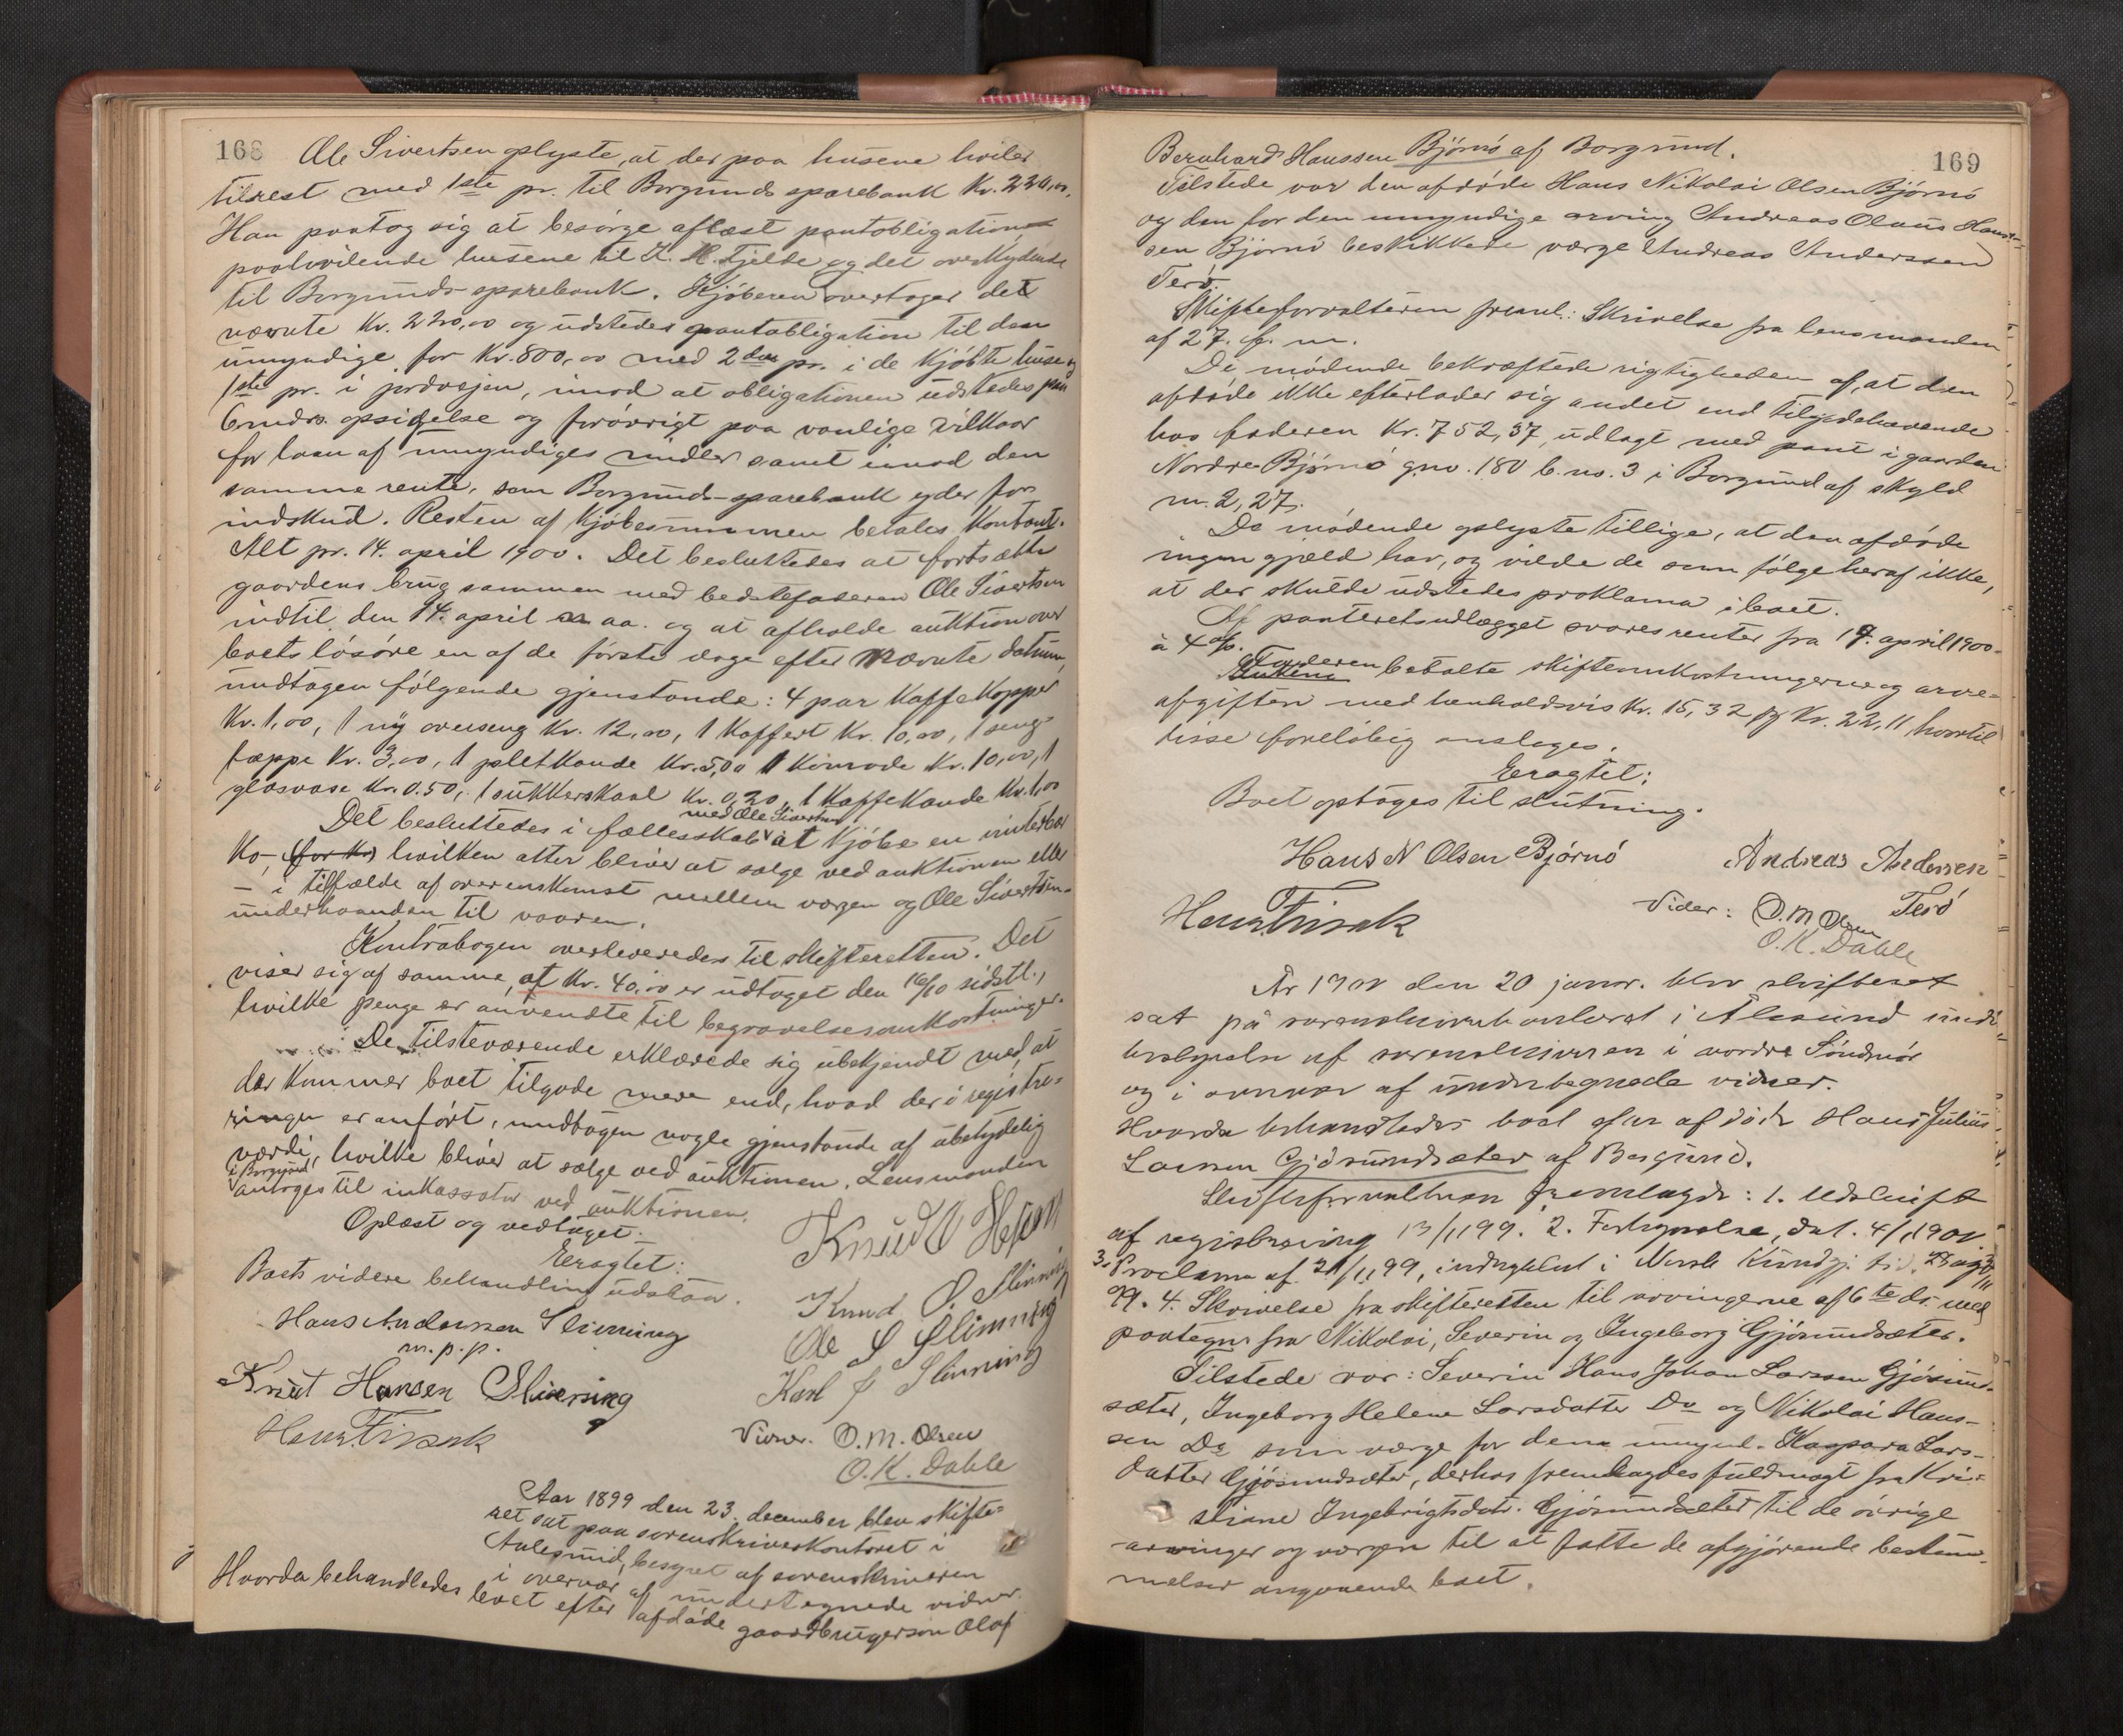 168
Ole Sivertsen oplyste, at der paa husene hviler
tilrest med 1ste pr. til Borgunds sparebank Kr. 220,00.
Han paatog sig at besørge aflæst pantobligationer
paahvilende husene til K. H. Fjelde og det overskydende
til Borgunds sparebank. Kjøberen overtager det
nævnte Kr. 220,00 og udsteder pantobligation til den
umyndige for Kr. 800,00 med 2den pr. i de kjøbte huse og
1ste pr. i jordvejen, imod at obligationen udstedes paa
6 mndrs. opsigelse og forøvrigt paa vanlige vilkaar
for laan af umyndiges midler samt imod den
samme rente, som Borgunds-sparebank yder for
indskud. Resten af kjøbesummen betales kontant.
Alt pr. 14. april 1900. Det besluttedes at fortsætte
gaardens brug sammen med bedstefaderen Ole Sivertsen
indtil den 14. april aa. og at afholde auktion over
boets løsøre en af de første dage efter nævnte datum,
undtagen følgende gjenstande: 4 par kaffekopper
Kr. 1,00, 1 ny overseng Kr. 12,00, 1 koffert Kr. 10,00, 1 seng-
tæppe Kr. 3,00, 1 pletkande Kr. 5,00 1 komode Kr. 10,00, 1
glasvase Kr. 0.50, 1 sukkerskaal Kr. 0,20, 1 kaffekande Kr. 1,00
med Ole Sivertsen
Det besluttedes i fællesskab at kjøbe en vinterbær
ko, (for Kr) hvilken atter bliver at sælge ved auktionen eller
– i tilfælde af overenskomst mellem værgen og Ole Sivertsen –
underhaanden til vaaren.
Kontrabogen overleveredes til skifteretten. Det
viser sig af samme, at Kr. 40,00 er udtaget den 16/10 sidstl.,
hvilke penge er anvendte til begravelsesomkostninger.
De tilstedeværende erklærede sig ubekjendt med, at
der kommer boet tilgode mere end, hvad der i registre-
ringen er anført, undtagen nogle gjenstande af ubetydelig
værdi, hvilke bliver at sælge ved auktionen. Lensmanden
i Borgund
antages til inkassator ved auktionen.
Oplæst og vedtaget.
Eragtet:
Boets videre behandling udstaar.
Hans Anderssen Slinning
m. p. p.
Knut Hansen Slinning
Hans Frisak
Knud O. Slinning
Ole S Slinning
Karl J Slinning
Vidner. O. M. Olsen
O. K. Dahle
Aar 1899 den 23. december blev skifte-
ret sat paa sorenskriverkontoret i
Aalesund, besyret af sorenskriveren
i overvær af undertegnede vidner.
Hvorda behandledes boet efter afdøde gaardbrugersøn Olaf
169
Bernhard Hanssen Bjørnø af Borgund.
Tilstede var den afdøde Hans Nikolai Olsen Bjørnø
og den for den umyndige arving Andreas Olaus Hans-
sen Bjørnø beskikkede værge Andreas Anderssen
Terø.
Skifteforvalteren freml.: Skrivelse fra lensmanden
af 27. f. m.
De mødende bekræftede rigtigheden af, at den
afdøde ikke efterlader sig andet end tilgodehavende
hos faderen Kr. 752,37, udlagt med pant i gaarden
Nordre Bjørnø gno. 180 b. no. 3 i Borgund af skyld
m. 2,27.
De mødende oplyste tillige, at den afdøde
ingen gjæld har, og vilde de som følge heraf ikke,
at der skulde udstedes proklama i boet.
Af panteretsudlægget svares renter fra 19. april 1900.
à 4 %.
Faderen betalte skifteomkostningerne og arve-
afgiften med henholdsvis Kr. 15,32 og Kr. 22,11, hvortil
disse foreløbig anslaaes.
Eragtet:
Boet optages til slutning.
Hans N Olsen Bjørnø
Andreas Andersen
Terø
Hans Frisak
Vidner: O. M Olsen
O. K. Dahle
År 1900 den 20 januar. blev skifteret
sat på sorenskriverkontoret i Ålesund under
bestyrelse af sorenskriveren i nordre Søndmør
og i overvær af undertegnede vidner.
Hvorda behandledes boet efter afdøde Hans Julius
Larssen Gjøsundsæter af Borgund.
Skifteforvalteren fremlagde: 1. Udskrift
af registrering 13/11 99. 2. Forlignelse, dat. 4/1 1900.
3. Proclama af 21/11 99, indrykket i Norsk Kundgj. tid.
99. 4. Skrivelse fra skifteretten til arvingerne af 6te ds. med
paategn. fra Nikolai, Severin og Ingeborg Gjøsundsæter.
Tilstede var: Severin Hans Johan Larssen Gjøsund-
sæter, Ingeborg Helene Larsdatter Do og Nikolai Hans-
sen Do som værge for den umynd. Kaspara Lars-
datter Gjøsundsæter, derhos fremlagdes fuldmagt fra Kri-
stiane Ingebrigtsdatr. Gjøsundsæter til de øvrige
arvinger og værgen til at fatte de afgjørende bestem-
melser angaaende boet.